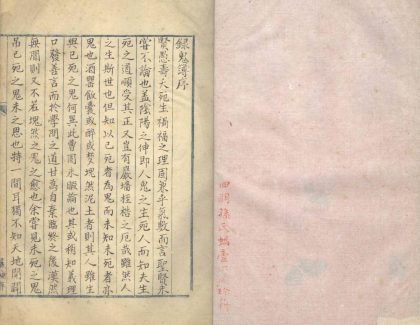 錄鬼簿序
賢愚壽夭死生禍福之理固兼乎氣數而言聖賢未
嘗不論也蓋陰陽之伸即人鬼之生死人而知夫生
死之道順受其正又豈有巖墻桎梏之厄哉雖然人
之生斯世也但知以已死者為鬼而未知未死者亦
鬼也酒罌飯囊或醉或夢塊然泥土者則其人雖生
與已死之鬼何異此曹固未暇論也其或稍知義理
口發善言而於學問之道甘為自棄臨終之後漠然
無聞則又不若塊然之鬼之愈也余嘗見未死之鬼
吊已死之鬼未之思也特一間耳獨不知天地開闢
四明孫氏蝸廬